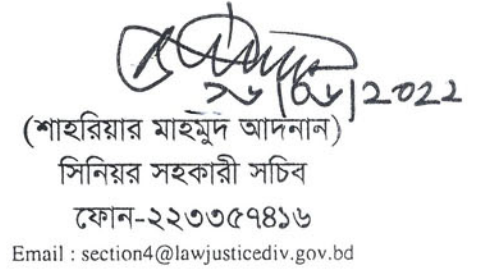 ১৬/০৬/2022
(শাহরিয়ার মাহমুদ আদনান)
সিনিয়র সহকারী সচিব
ফোন-২২৩৩৫৭৪১৬
Email : section4@lawjusticediv.gov.bd